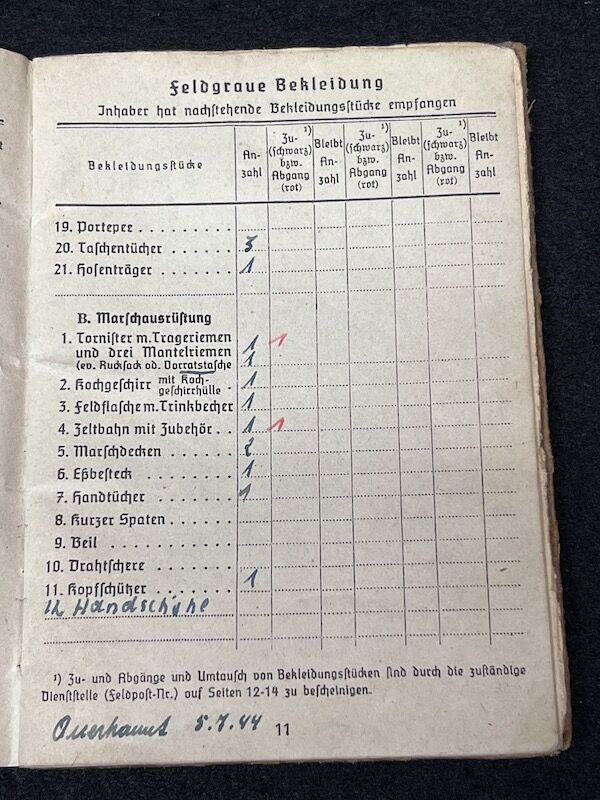 Feldgraue Bekleidung
Inhaber hat nachstehende Bekleidungsstücke empfangen
Bekleidungsstücke An-zahl Zu-¹) (schwarz) bzw. Abgang (rot) Bleibt An-zahl Zu-¹) (schwarz) bzw. Abgang (rot) Bleibt An-zahl Zu-¹) (schwarz) bzw. Abgang (rot) Bleibt An-zahl
19. Portepee . . . . . . . . .
20. Taschentücher . . . . . . 3
21. Hosenträger . . . . . . . 1
B. Marschausrüstung
1. Tornister m. Trageriemen 1 1
und drei Mantelriemen
(ev. Rucksack od. Vorratstasche 1
2. Kochgeschirr mit Koch-geschirrhülle . 1
3. Feldflasche m. Trinkbecher 1
4. Zeltbahn mit Zubehör . . 1 1
5. Marschdecken . . . . . . 2
6. Eßbesteck . . . . . . . . 1
7. Handtücher . . . . . . . 1
8. Kurzer Spaten . . . . . .
9. Beil . . . . . . . . . . .
10. Drahtschere . . . . . . .
11. Kopfschützer . . . . . . . 1
12 Handschuhe
¹) Zu- und Abgänge und Umtausch von Bekleidungsstücken sind durch die zuständige
Dienststelle (Feldpost-Nr.) auf Seiten 12-14 zu bescheinigen.
5.7.44 11